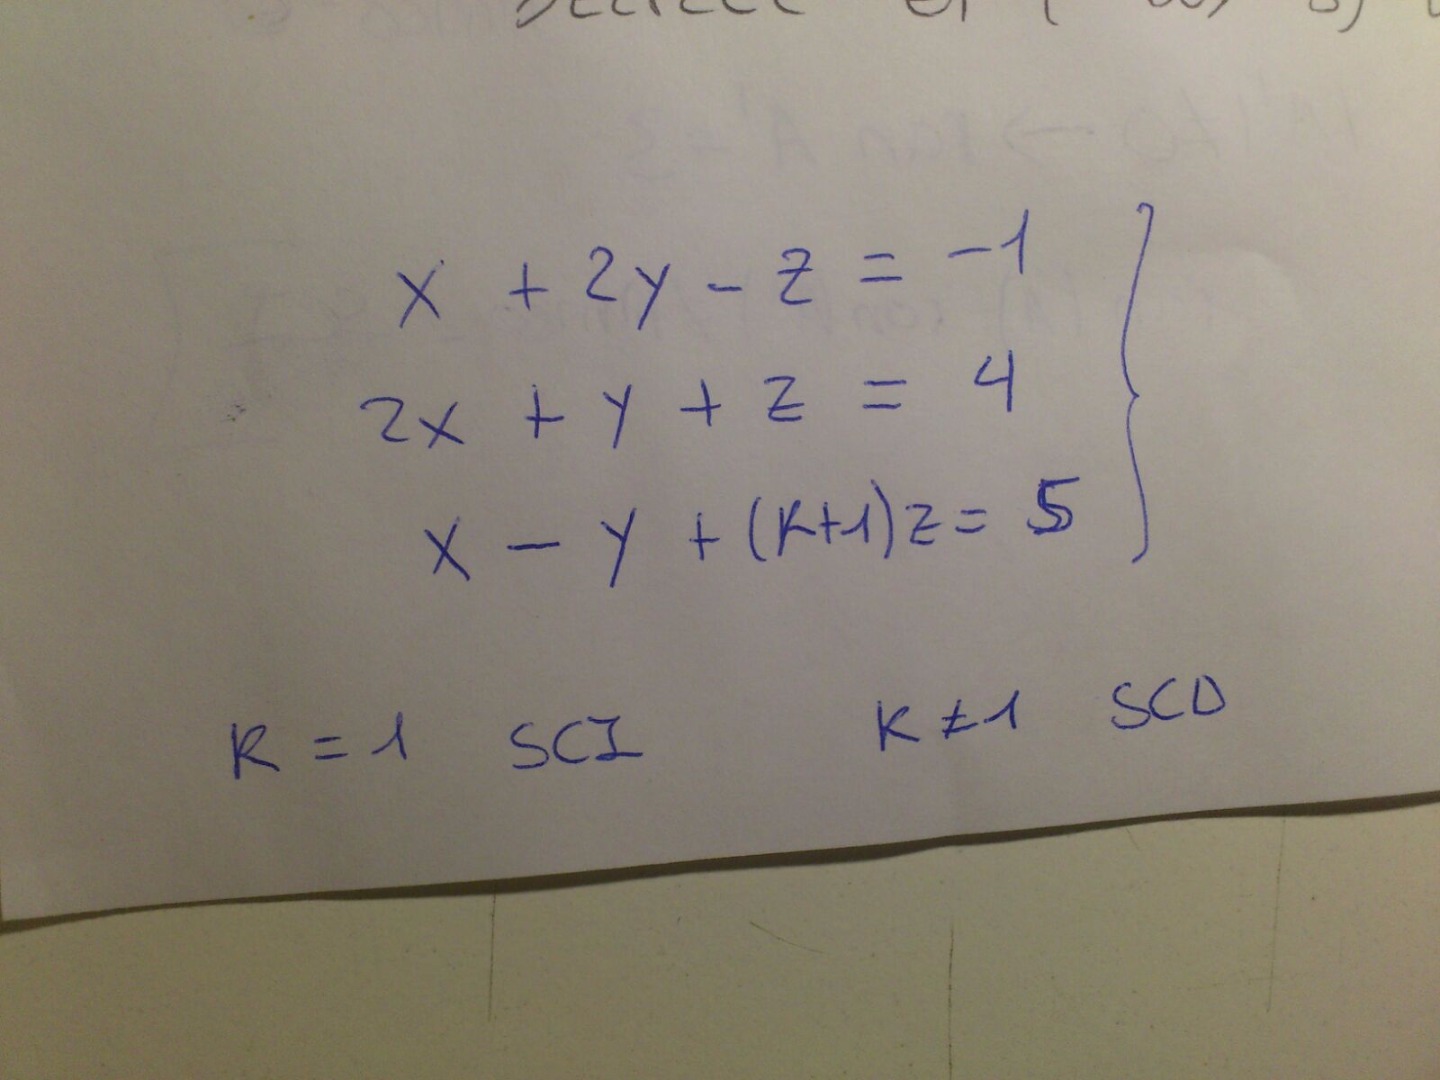 x + 2y - z = -1
2x + y + z = 4
x - y + (k+1)z = 5
k = 1 SCI k ≠ 1 SCD